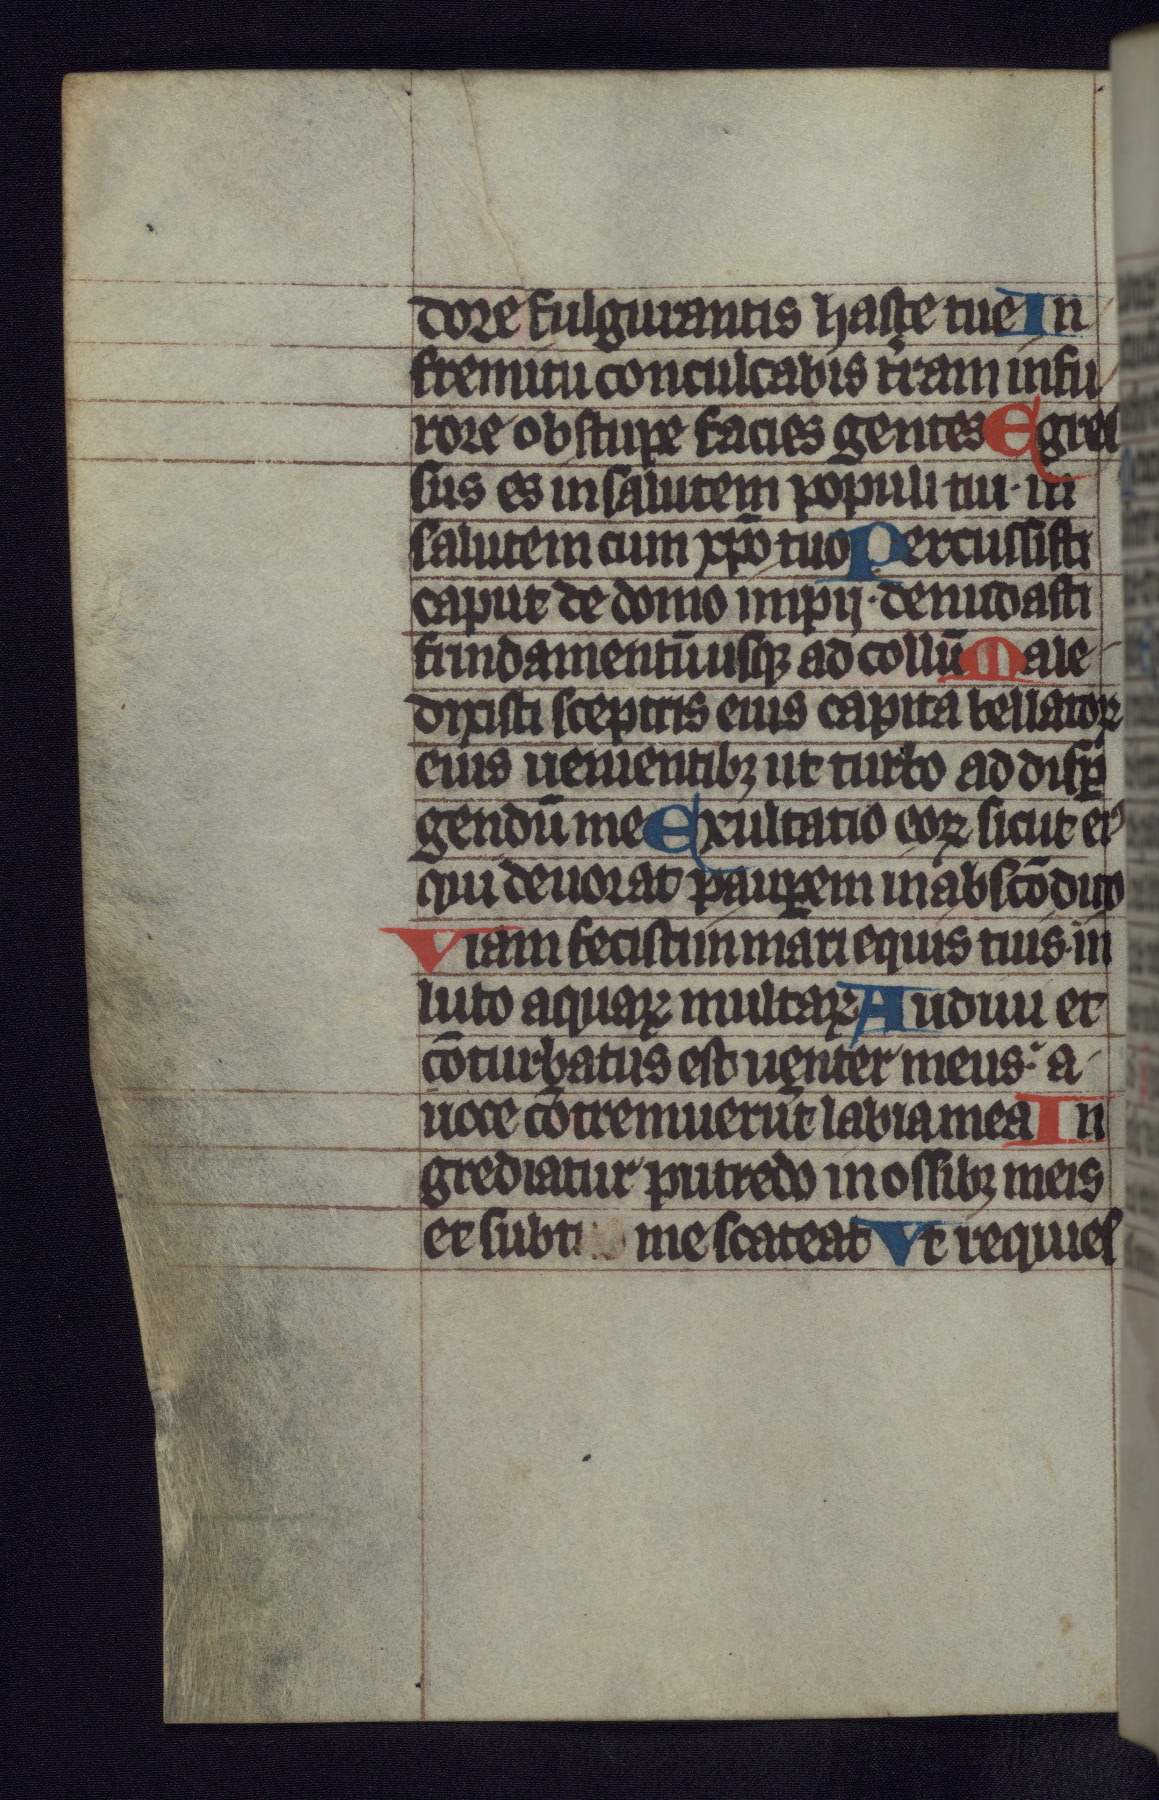 dore fulgurantis haste tue In
fremitu conculcabis t̄ram in fu
rore obstupe facies gentes Egres
sus es in salutem populi tui· in
salutem cum xp̄o tuo Percussisti
caput de domo impij· denudasti
fundamentū usqꝫ ad collū Male
dixisti sceptris eius capita bellatoꝝ
eius uenientibꝫ ut turbo ad disꝑ
gendū me Exultatio eoꝝ sicut eiꝰ
qui deuorat pauꝑem in abscōdito
Viam fecisti in mari equis tuis· in
luto aquaꝝ multaꝝ Audiui et
cōturbatus est uenter meus· a
uoce cōtremuerūt labia mea In
grediatur putredo in ossibꝫ meis
et subt me scateat Vt requies